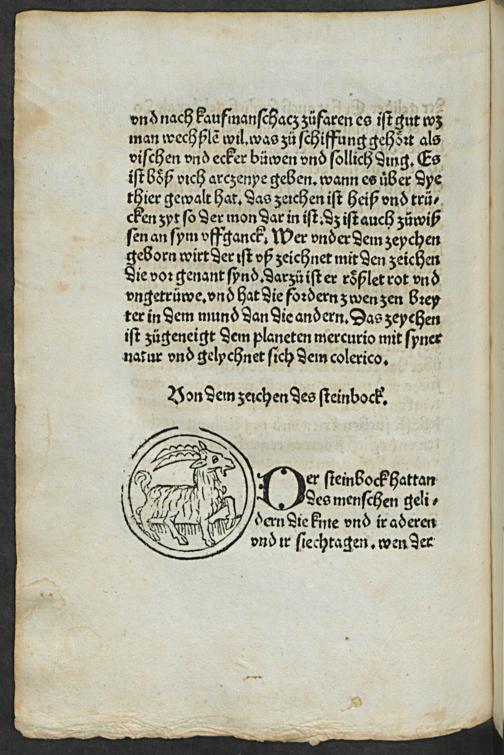 vnd nach kaufmanschacz zůfaren es ist gut wz
man wechßlē wil. was zů schiffung gehört als
vischen vnd ecker büwen vnd söllich ding. Es
ist böß vich arczenye geben. wann es über dye
thier gewalt hat. das zeichen ist heiß vnd trü⸗
cken zyt so der mon dar in ist. dz ist auch zůwiß
sen an sym vffganck. Wer vnder dem zeychen
geborn wirt der ist vß zeichnet mit den zeichen
die vor genant synd. darzů ist er rößlet rot vnd
vngetrüwe. vnd hat die fordern zwen zen brey
ter in dem mund dan die andern. Das zeychen
ist zůgeneigt dem planeten mercurio mit syner
natur vnd gelychnet sich dem colerico.
Von dem zeichen des steinbock.
Der steinbock hat tan
des menschen geli⸗
dern die knie vnd ir aderen
vnd ir siechtagen. wen der